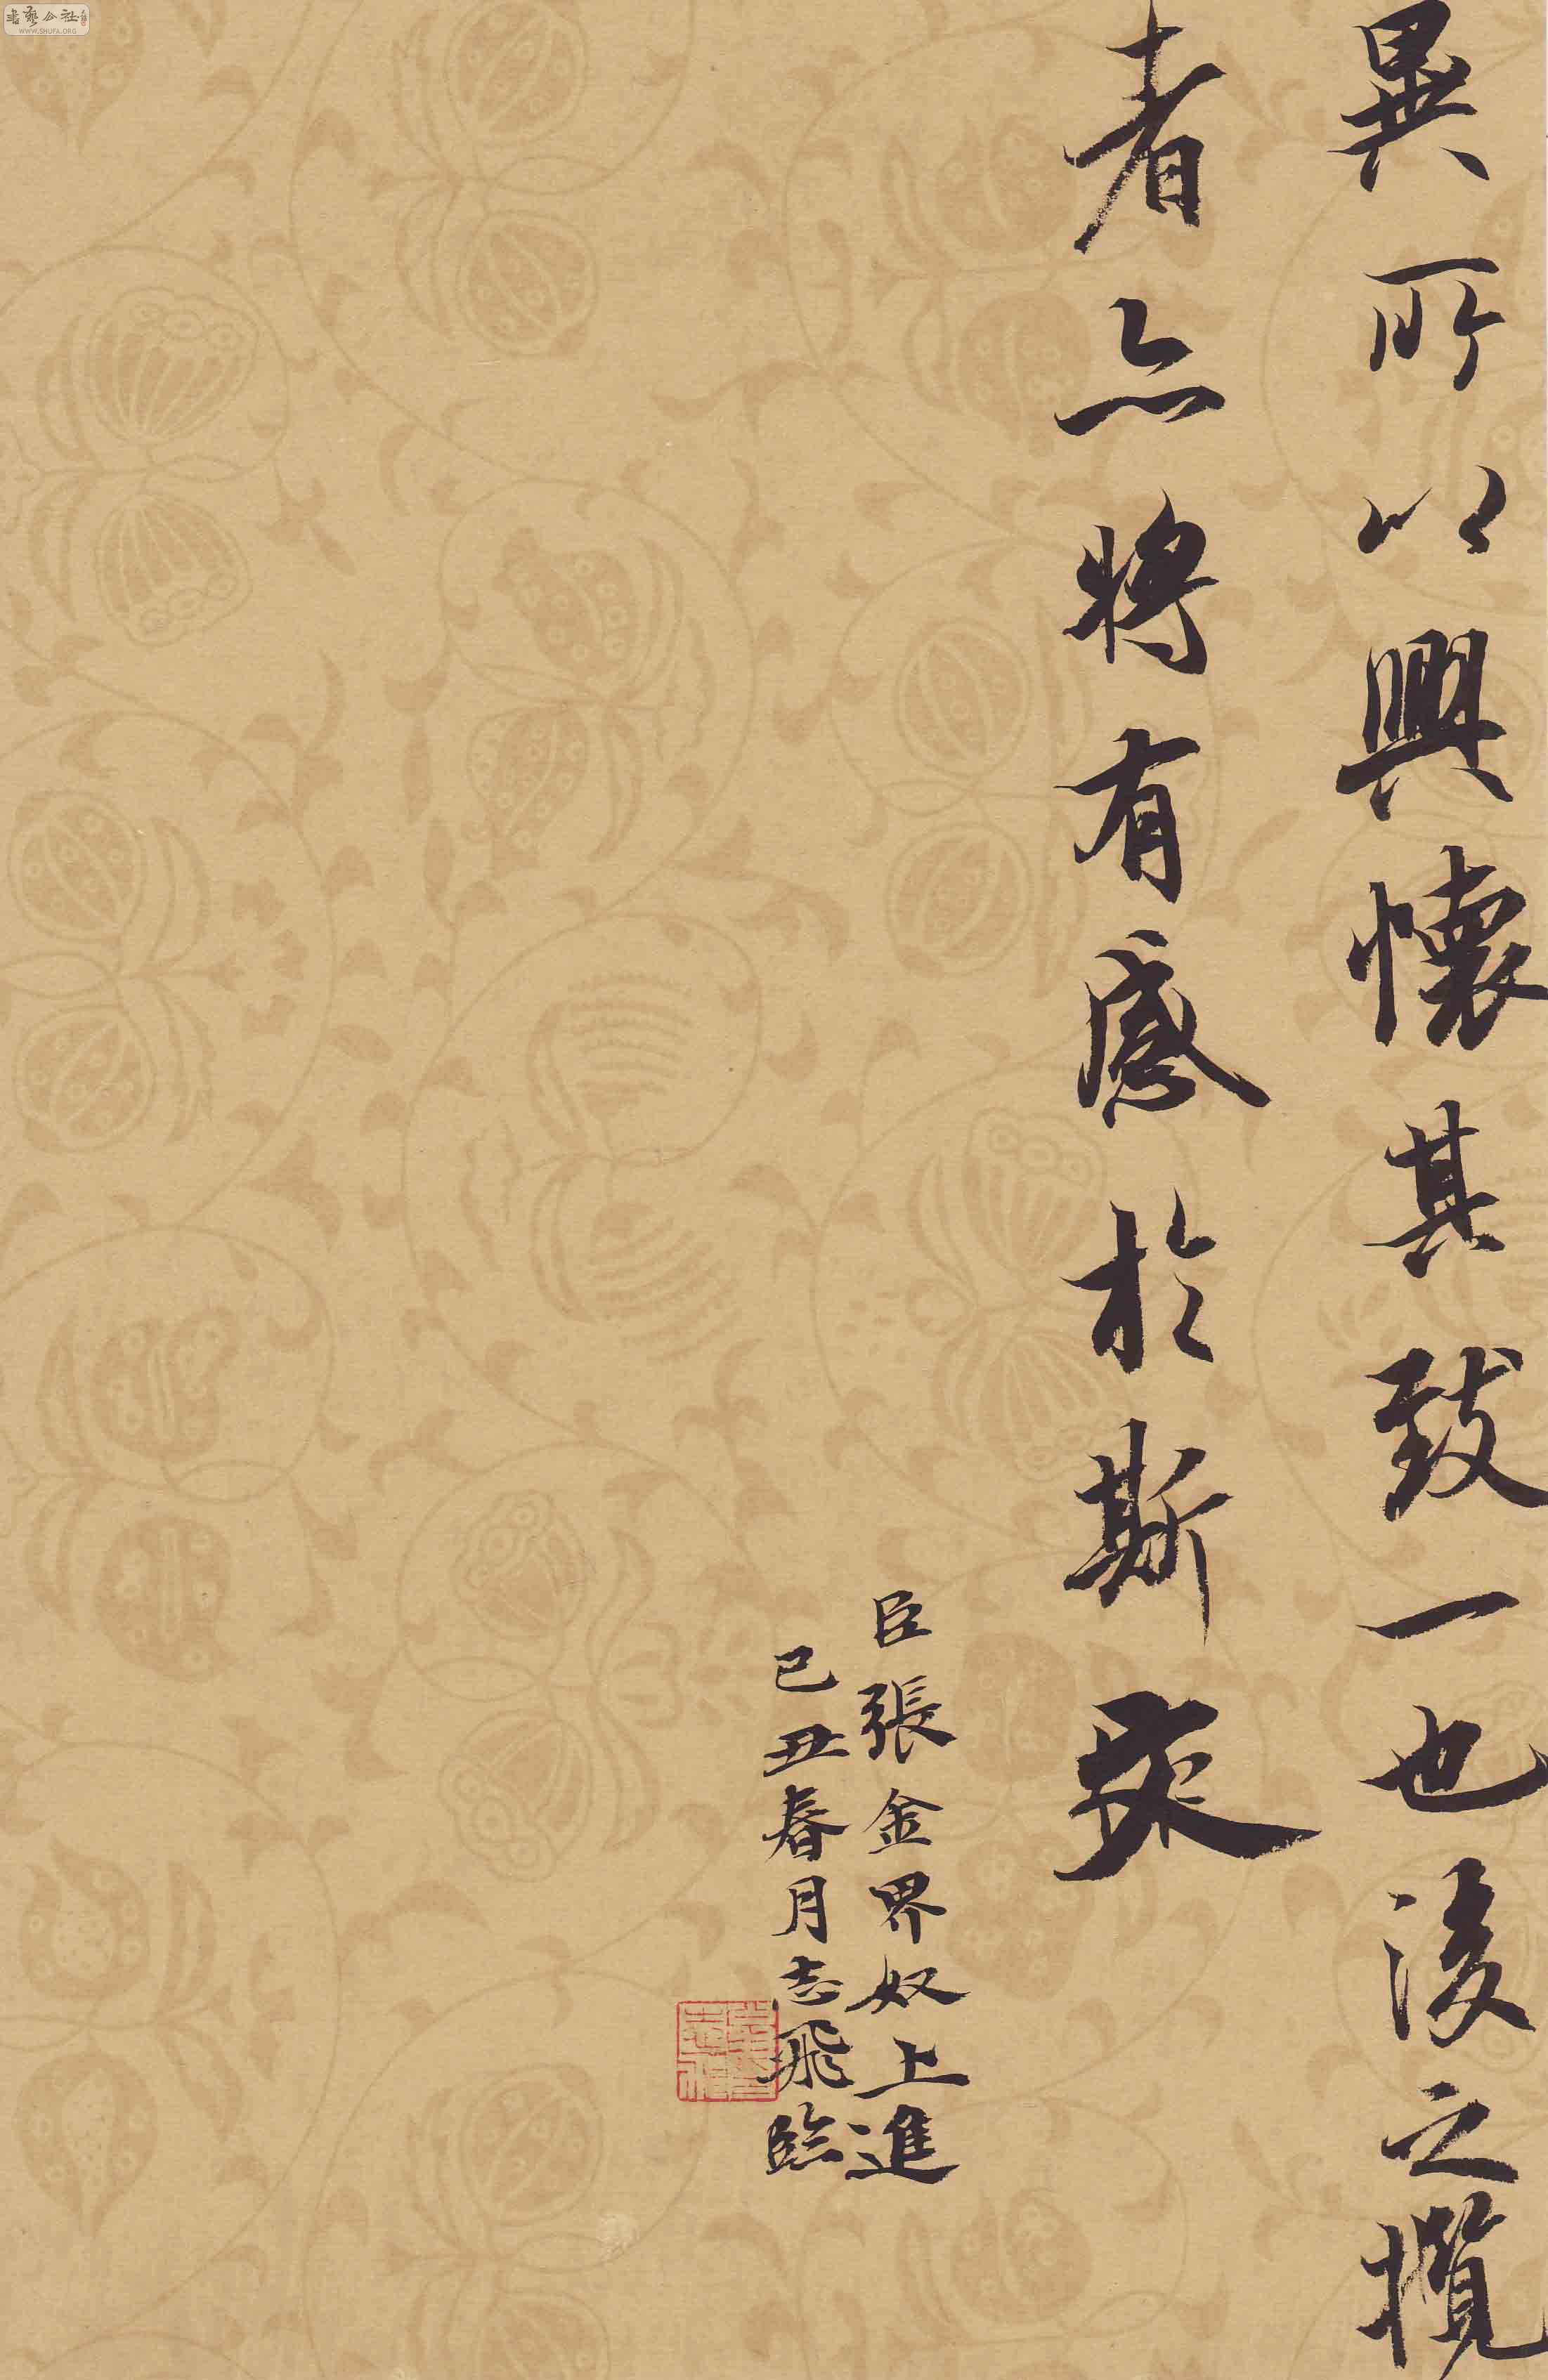 異所以興懷其致一也後之攬
者亦將有感於斯文
臣張金界奴上進
己丑春月志飛臨
書藝公社
WWW.SHUFA.ORG